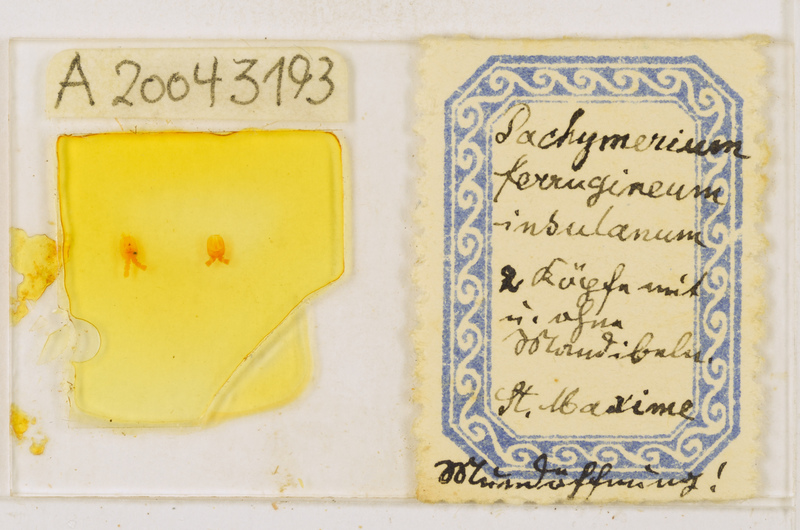 A 20043193
Pachymerium
ferrugineum
insulanum
2 Köpfe mit
u. ohne
Mandibeln.
St. Maxime
Mundöffnung!